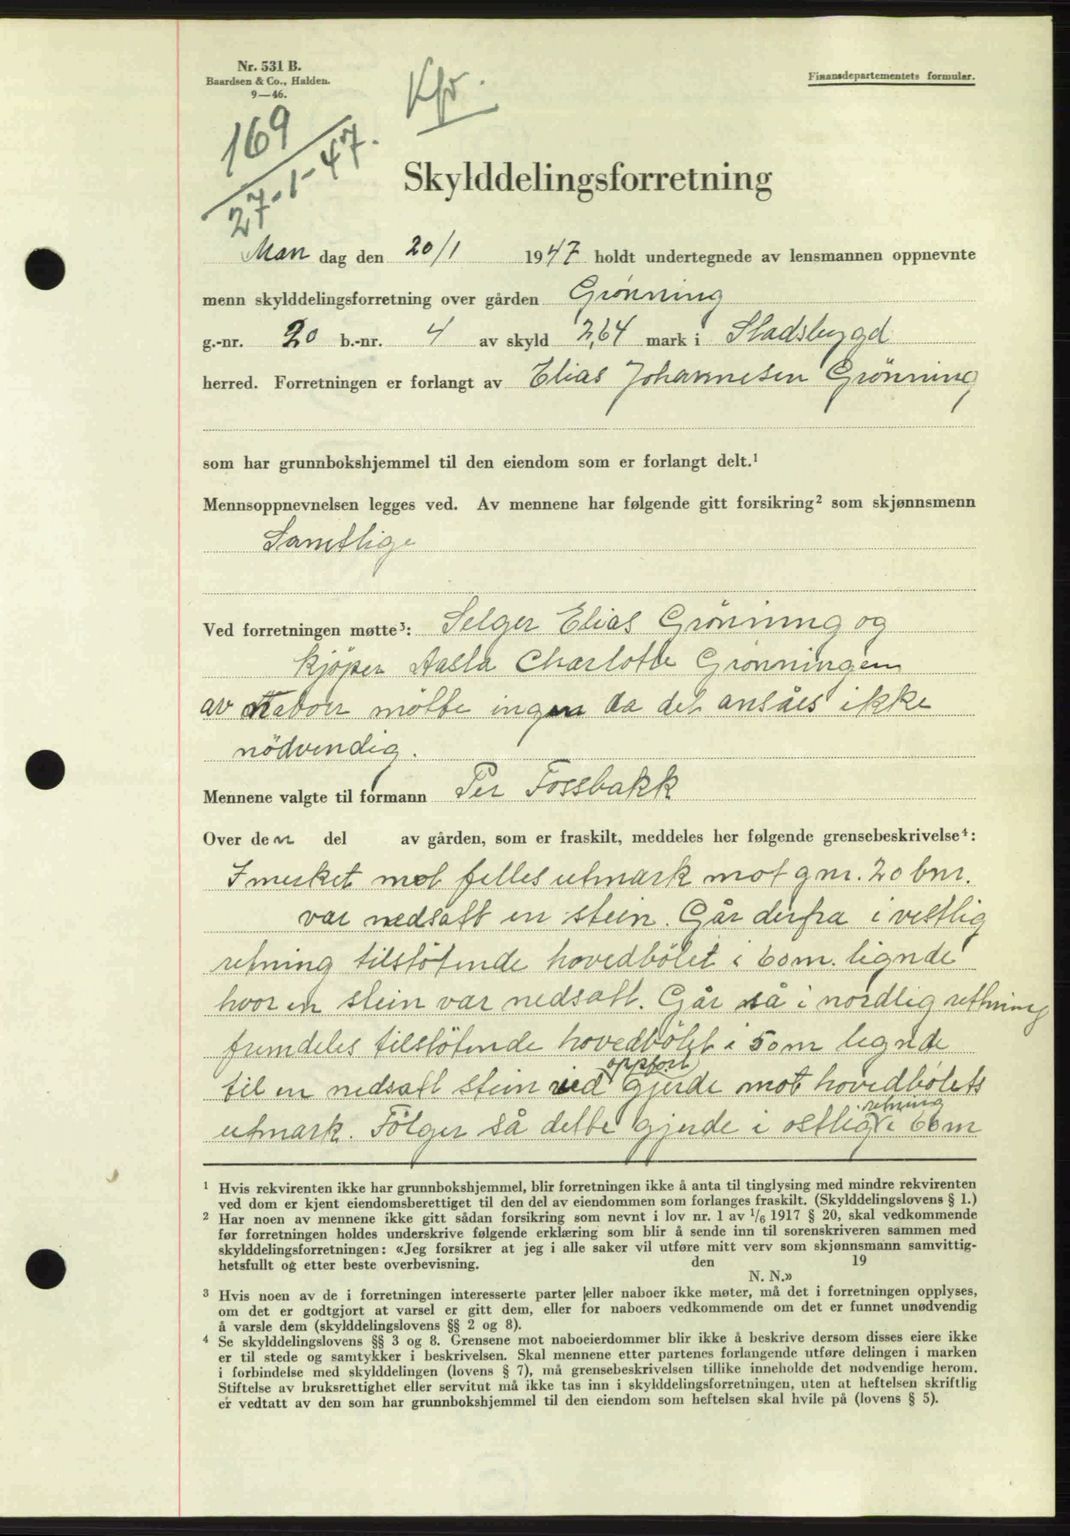 Nr. 531 B.
Baardsen & Co., Halden.
9—46.
Finansdepartementets formular.
Kfr.
169
27-1-47.
Skylddelingsforretning
Man dag den 20/1 1947 holdt undertegnede av lensmannen oppnevnte
menn skylddelingsforretning over gården Grönning
g.-nr. 20 b.-nr. 4 av skyld 2,64 mark i Stadsbygd
herred. Forretningen er forlangt av Elias Johannesen Grönning
som har grunnbokshjemmel til den eiendom som er forlangt delt.¹
Mennsoppnevnelsen legges ved. Av mennene har følgende gitt forsikring² som skjønnsmenn
Samtlige
Ved forretningen møtte³: Selger Elias Grönning og
kjöper Aasla Charlotte Grönningen
av naboer mötte ingen da det ansåes ikke
nödvendig.
Mennene valgte til formann Per Fossbakk
Over den del av gården, som er fraskilt, meddeles her følgende grensebeskrivelse⁴:
I merket mot felles utmark mot gnr. 20 bnr.
var nedsatt en stein. Går derfra i vestlig
retning tilstötende hovedbölet i 60 m. lignde
hvor en stein var nedsatt. Går så i nordlig retning
fremdeles tilstötende hovedbölet i 50 m legnde
til en nedsatt stein ved oppfört gjerde mot hovedbölets
utmark. Fölger så dette gjerde i ostlig retning i 66 m
¹ Hvis rekvirenten ikke har grunnbokshjemmel, blir forretningen ikke å anta til tinglysing med mindre rekvirenten
ved dom er kjent eiendomsberettiget til den del av eiendommen som forlanges fraskilt. (Skylddelingslovens § 1.)
² Har noen av mennene ikke gitt sådan forsikring som nevnt i lov nr. 1 av 1/6 1917 § 20, skal vedkommende
før forretningen holdes underskrive følgende erklæring som blir å sende inn til sorenskriveren sammen med
skylddelingsforretningen: «Jeg forsikrer at jeg i alle saker vil utføre mitt verv som skjønnsmann samvittig-
hetsfullt og etter beste overbevisning. den 19
N. N.»
³ Hvis noen av de i forretningen interesserte parter eller naboer ikke møter, må det i forretningen opplyses,
om det er godtgjort at varsel er gitt dem, eller for naboers vedkommende om det er funnet unødvendig
å varsle dem (skylddelingslovens §§ 2 og 8).
⁴ Se skylddelingslovens §§ 3 og 8. Grensene mot naboeierdommer blir ikke å beskrive dersom disses eiere ikke
er til stede og samtykker i beskrivelsen. Skal mennene etter partenes forlangende utføre delingen i marken
i forbindelse med skylddelingen (lovens § 7), må grensebeskrivelsen tillike inneholde det nødvendige herom.
Stiftelse av bruksrettighet eller servitut må ikke tas inn i skylddelingsforretningen, uten at heftelsen skriftlig
er vedtatt av den som har grunnbokshjemmel til den eiendom som heftelsen skal hvile på (lovens § 5).